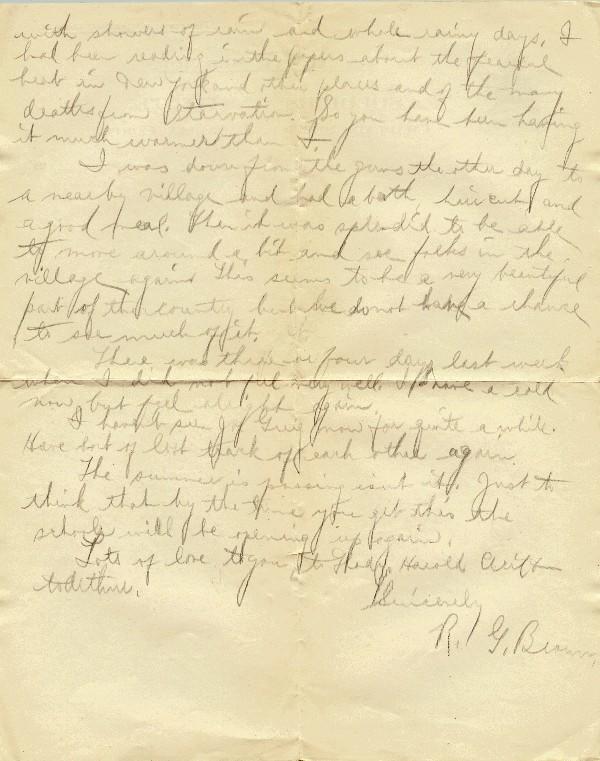 with showers of rain and whole rainy days. I
had been reading in the papers about the fearful
heat in New York and other places and of the many
deaths from starvation. So you have been having
it much warmer than I
I was down from the guns the other day to
a nearby village and had a bath, haircut and
a good meal. Then it was splendid to be able
to move around a bit and see folks in the
village again. This seems to be a very beautiful
part of the country but we do not have a chance
to see much of it.
There was three or four days last week
when I did not feel very well. I have a cold
now but feel alright again.
I havn't seen Greig now for quite a while.
Have sort of lost track of each other again
The summer is passing isn't it. Just to
think that by the time you get this the
schools will be opening up again.
Lots of love to you, to Harold
Sincerely
R. G. Brown